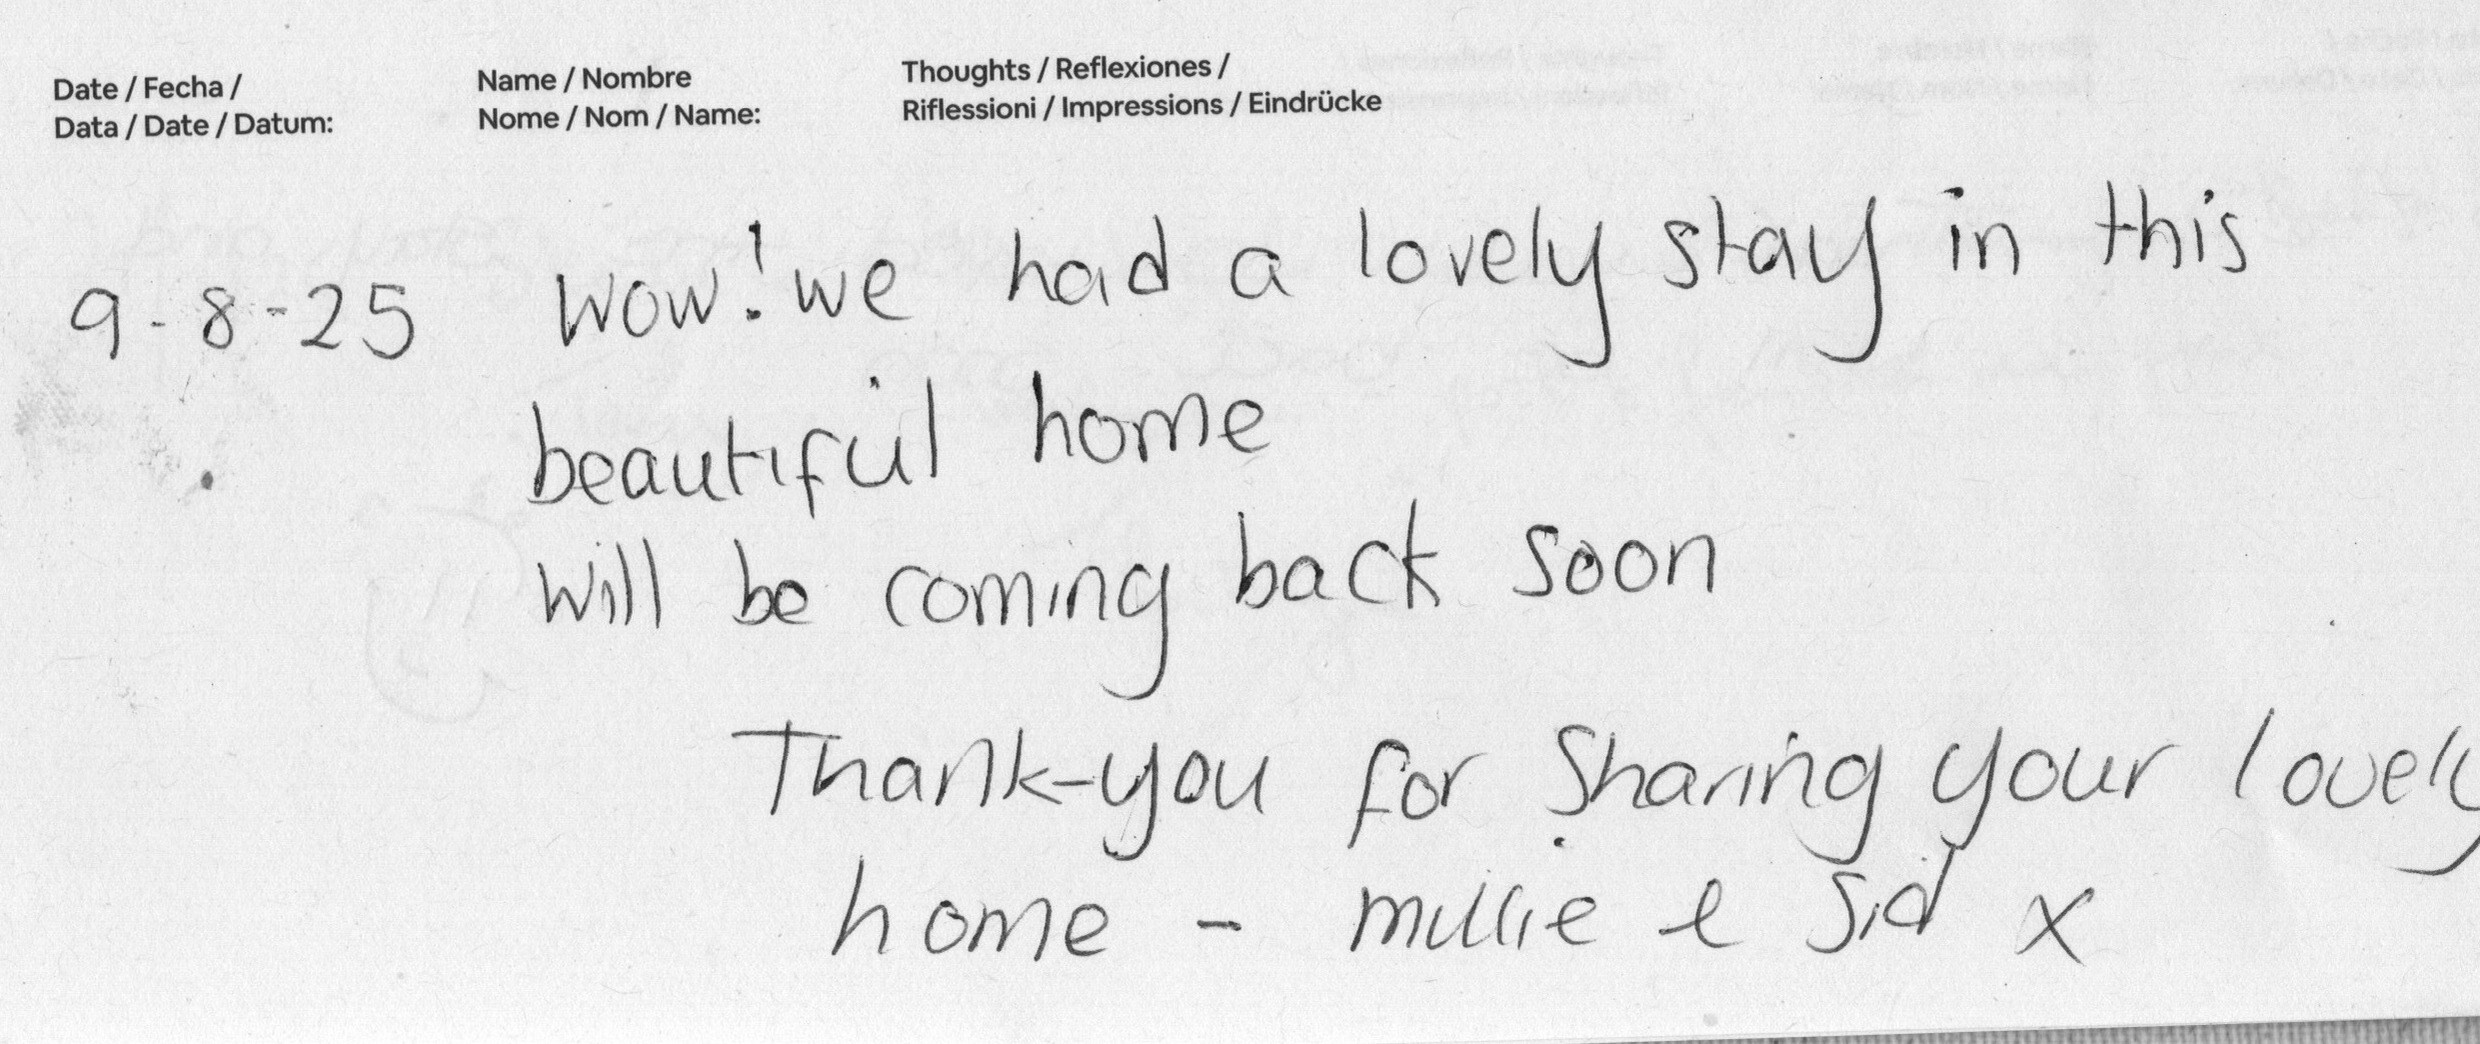 Date / Fecha /
Data / Date / Datum:
Name / Nombre
Nome / Nom / Name:
Thoughts / Reflexiones /
Riflessioni / Impressions / Eindrücke
9-8-25 Wow! we had a lovely stay in this
beautiful home
will be coming back soon
Thank-you for Sharing your lovely
home - millie e Sid x